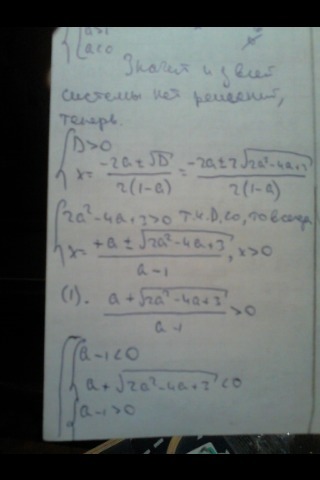 a<0
Значит и у всей
системы нет решений,
теперь.
D>0
x= -2a±√D / 2(1-a) = -2a±2√2a²-4a+3 / 2(1-a)
2a²-4a+3>0 т.к. D<0, то всегда
x= +a±√2a²-4a+3 / a-1, x>0
(1). a+√2a²-4a+3 / a-1 >0
a-1<0
a+√2a²-4a+3<0
a-1>0